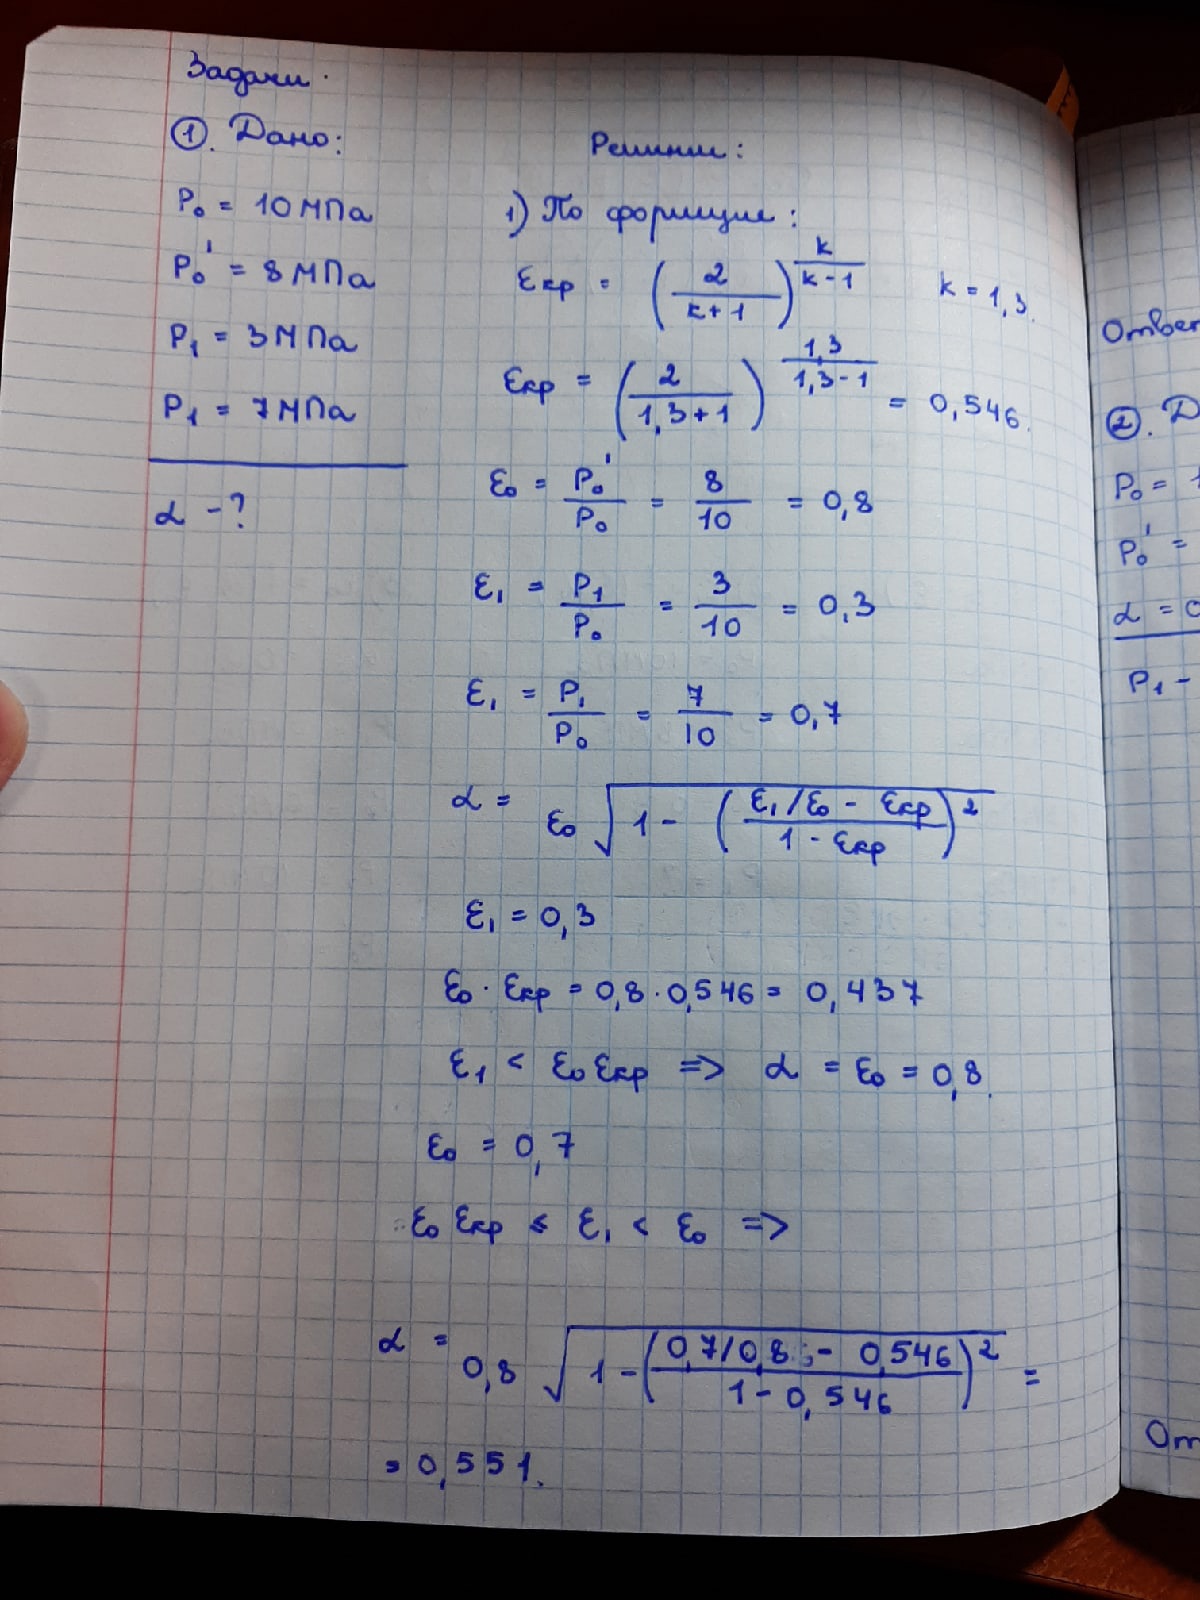 Задачи.
①. Дано:
P₀ = 10 МПа
P₀' = 8 МПа
P₁ = 3 МПа
P₁ = 7 МПа
α - ?
Решение:
1) По формуле:
εкр = (2/(k+1))^(k/(k-1)) k = 1,3.
εкр = (2/(1,3+1))^(1,3/(1,3-1)) = 0,546.
ε₀ = P₀'/P₀ = 8/10 = 0,8
ε₁ = P₁/P₀ = 3/10 = 0,3
ε₁ = P₁/P₀ = 7/10 = 0,7
α = ε₀ √(1 - ((ε₁/ε₀ - εкр)/(1 - εкр))²)
ε₁ = 0,3
ε₀ · εкр = 0,8 · 0,546 = 0,437
ε₁ < ε₀ εкр => α = ε₀ = 0,8.
ε₀ = 0,7
ε₀ εкр ≤ ε₁ < ε₀ =>
α = 0,8 √(1 - ((0,7/0,8 - 0,546)/(1 - 0,546))²) =
= 0,551.
Ответ
②. Д
P₀ = 1
P₀' =
α = 0
P₁ -
От